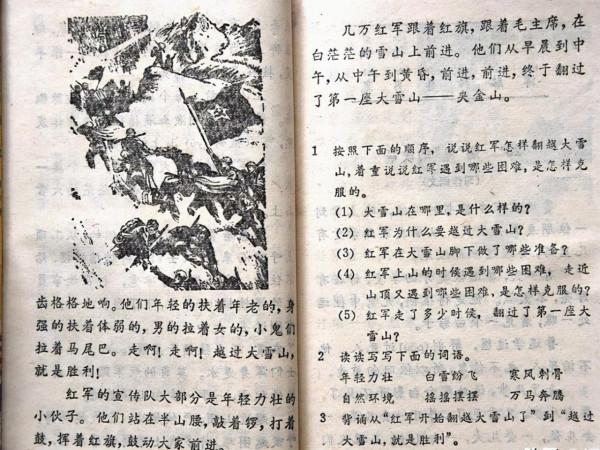 齿格格地响。他们年轻的扶着年老的，身
强的扶着体弱的，男的拉着女的，小鬼们
拉着马尾巴。走啊！走啊！越过大雪山，
就是胜利！
红军的宣传队大部分是年轻力壮的
小伙子。他们站在半山腰，敲着锣，打着
鼓，挥着红旗，鼓动大家前进。
几万红军跟着红旗，跟着毛主席，在
白茫茫的雪山上前进。他们从早晨到中
午，从中午到黄昏，前进，前进，终于翻过
了第一座大雪山——夹金山。
1 按照下面的顺序，说说红军怎样翻越大雪
山，着重说说红军遇到哪些困难，是怎样克
服的。
(1) 大雪山在哪里，是什么样的？
(2) 红军为什么要越过大雪山？
(3) 红军在大雪山脚下做了哪些准备？
(4) 红军上山的时候遇到哪些困难，走近
山顶又遇到哪些困难，是怎样克服的？
(5) 红军走了多少时候，翻过了第一座大
雪山？
2 读读写写下面的词语。
年轻力壮 白雪纷飞 寒风刺骨
自然环境 摇摇摆摆 万马奔腾
3 背诵从“红军开始翻越大雪山了”到“越过
大雪山，就是胜利”。